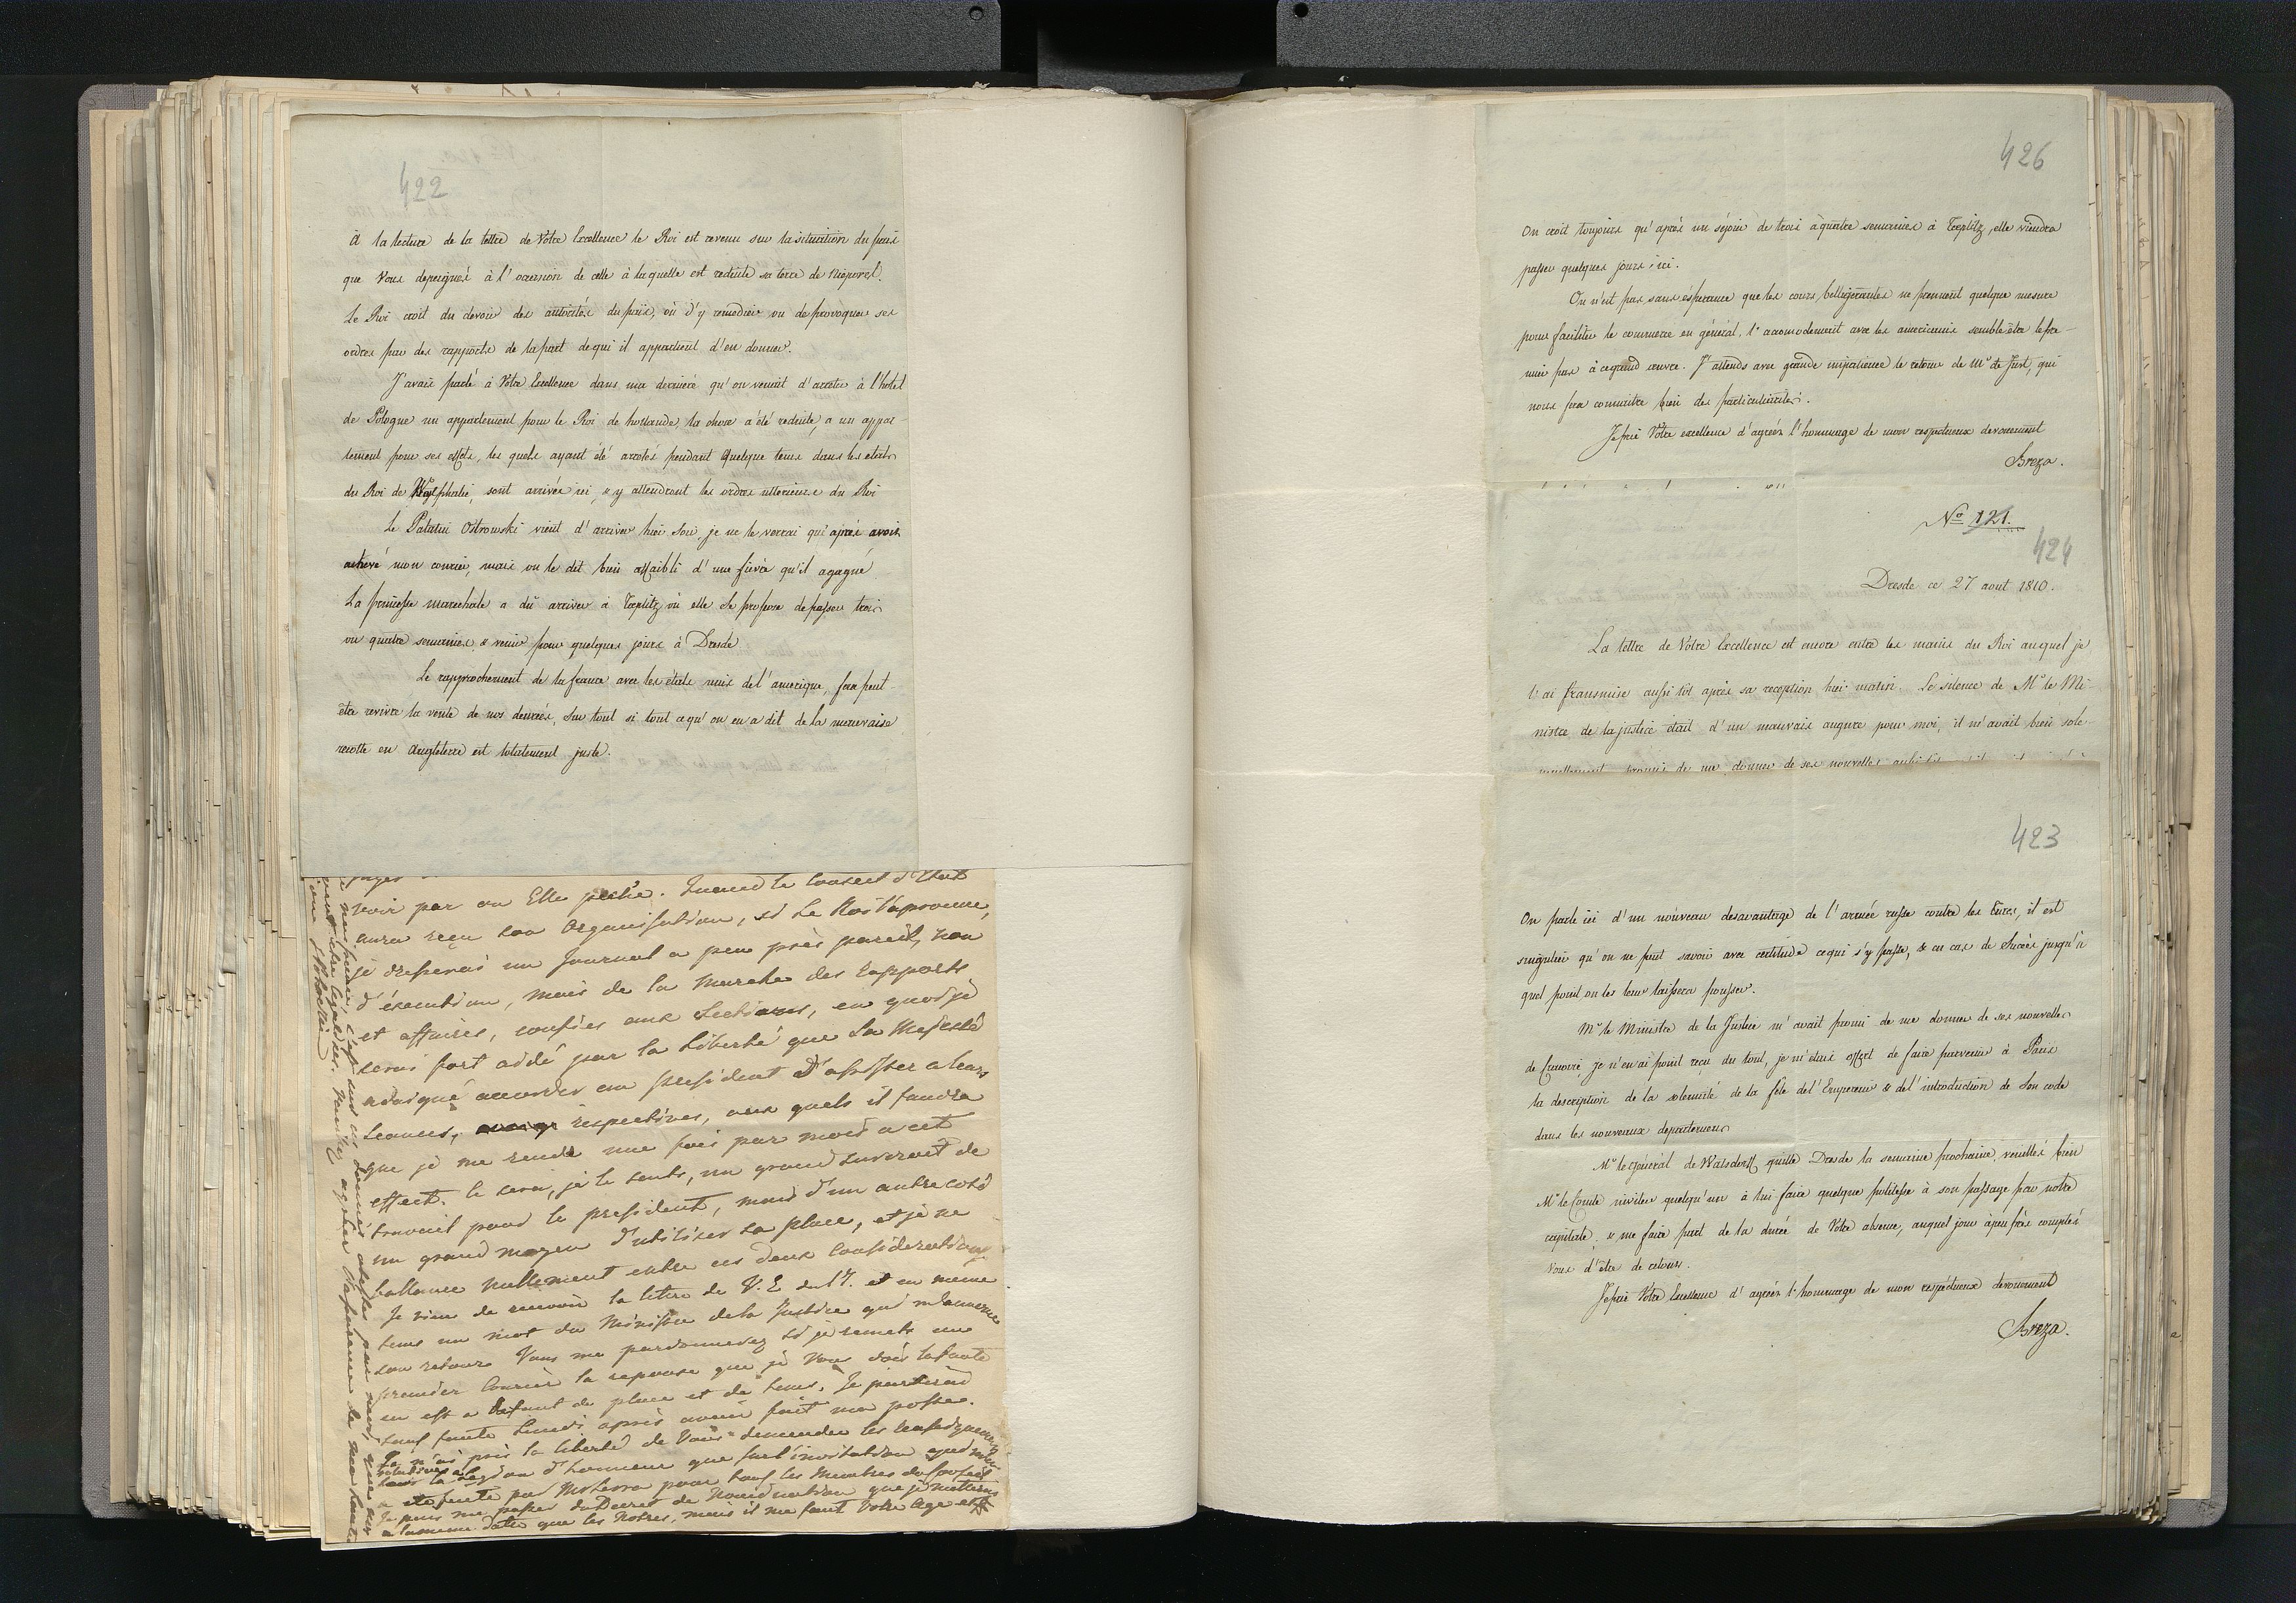 422
À la lecture de la lettre de Votre Excellence le Roi est revenu sur la situation du païs
que Vous depeignés à l'occasion de celle à laquelle est reduite sa terre de
Le Roi croit du devoir des autorités du païs, où d'y remedier ou de provoquer ses
ordres par des rapports de la part de qui il appartient d'en donner.
J'avais parlé à Votre Excellence dans ma derniere qu'on venait d'arreter à l'hotel
de Pologne un appartement pour le Roi de hollande, la chose a été reduite, a un appar-
tement pour ses effets, les quels ayant été arretés pendant quelque tems dans les etats
du Roi de Westphalie, sont arrivés ici, & y attendront les ordres ulterieurs du Roi
Le Palatin Ostrowski vient d'arriver hier soir, je ne le verrai qu'après avoir
achevé mon courier, mais on le dit bien affaibli d'une fievre qu'il a gagné
La princesse marechale a dû arriver à Teeplitz où elle se propose de passer trois
ou quatre semaines & venir pour quelques jours à Dresde
Le rapprochement de la france avec les états unis de l'amerique, fera peut
être revivre la vente de nos denrées, sur tout si tout ce qu'on en a dit de la mauvaise
recolte en Angleterre est totalement juste.
voir par ou Elle peche. Quand le Conseil d'Etat
aura reçu son Organisation, si le Roi l'aprouve,
je dresserai un Journal a peu près pareil, non
d'éxecution, mais de la Marche des rapports
et affaires, confiées aux Sections, en quoi je
serai fort aidé par la liberté que Sa Majesté
a daigné accorder au president d'assister a leurs
seances, respectives, aux quels il faudra
que je me rende une fois par mois a cet
effect. Ce sera, je le sents, un grand surcroit de
travail pour le president, mais d'un autre coté
un grand moyen d'utiliser sa place, et je ne
ballance nullement entre ces deux Considerations
Je viens de recevoir la lettre de V. E. du 17. et en meme
tems un mot du Ministre de la Justice qui m'annonce
son retour. Vous me pardonnerez si je remets au
premier Courier la reponse que je Vous dois la faute
en est a defaut de place et de tems. Je partirai
sans faute Lundi après avoir fait ma poste.
J'ai pris la liberté de Vous demander les renseignements
relatives a
la Legion d'honneur que sur l'invitation qui m'en
a eté faite par pour tous les Membres du Conseil
a la meme date que les Notres, mais il me faut Votre age et
426
On croit toujours qu'après un séjour de trois à quatre semaines à Teeplitz, elle viendra
passer quelques jours ici.
On n'est pas sans ésperance que les cours belligerantes ne prennent quelque mesure
pour faciliter le commerce en général, l'accomodement avec les americains semble être le pre-
mier pas à ce grand œuvre. J'attends avec grande impatience le retour de Mr de Just, qui
nous fera connaitre bien des particularités.
Je prie Votre excellence d'agréer l'hommage de mon respectueux devouement
Breza.
No 121.
424
Dresde ce 27 aout 1810.
La lettre de Votre Excellence est encore entre les mains du Roi auquel je
l'ai transmise aussi tôt après sa reception hier matin. Le silence de Mr le Mi-
nistre de la justice était d'un mauvais augure pour moi, il m'avait bien sole-
nnellement promis de me donner de ses nouvelles
423
On parle ici d'un nouveau desavantage de l'armée russe contre les Turcs, il est
singulier qu'on ne peut savoir avec certitude ce qui s'y passe, & en cas de Succès jusqu'à
quel point on les leur laissera pousser.
Mr le Ministre de la Justice m'avait promi de me donner de ses nouvelles
de Cracovie, je n'en ai point recu du tout, je m'étais offert de faire parvenir à Paris
la description de la solemnité de la fête de l'Empereur & de l'introduction de son code
dans les nouveaux departemens
Mr le général de Watzdorff quitte Dresde la semaine prochaine, veuillés bien
Mr le Comte inviter quelqu'un à lui faire quelque politesse à son passage par notre
capitale, & me faire part de la durée de Votre absence, auquel jour à peu près comptés
Vous d'être de retour.
Je prie Votre Excellence d'agréer l'hommage de mon respectueux devouement
Breza.